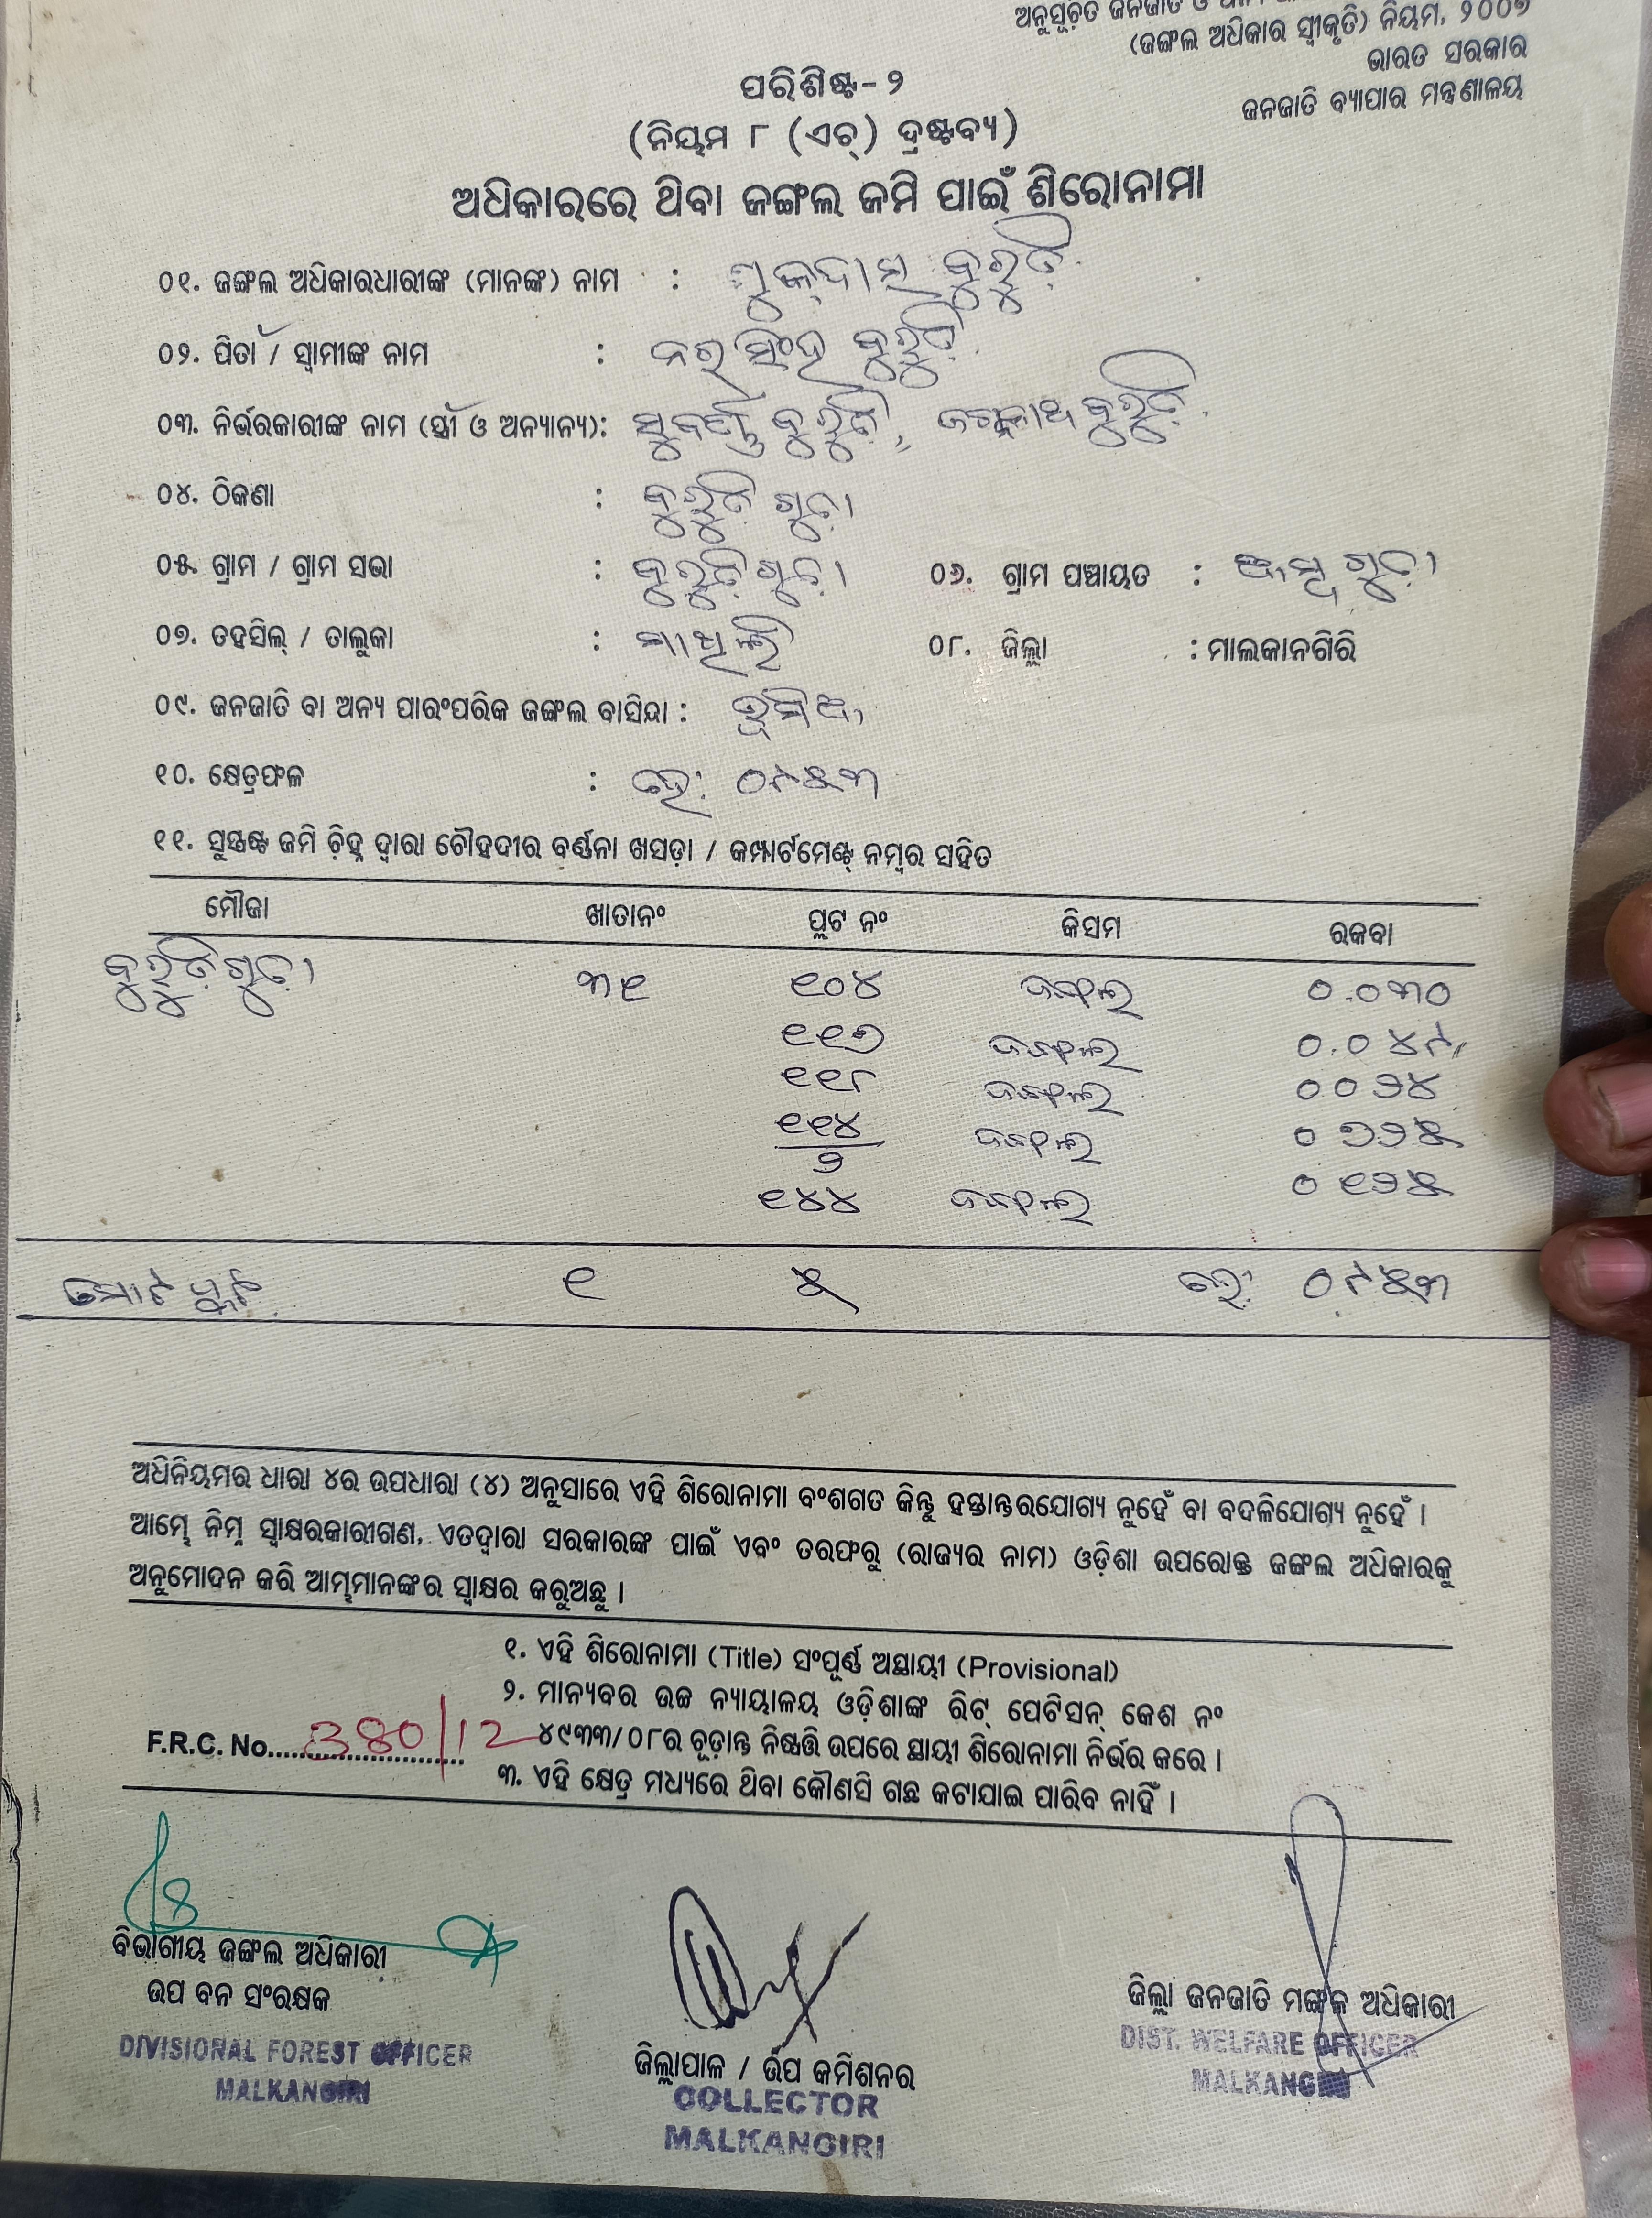 ଅନୁସୂଚିତ ଜନଜାତି ଓ
(ଜଙ୍ଗଲ ଅଧିକାର ସ୍ୱୀକୃତି) ନିୟମ, ୨୦୦୭
ଭାରତ ସରକାର
ଜନଜାତି ବ୍ୟାପାର ମନ୍ତ୍ରଣାଳୟ
ପରିଶିଷ୍ଟ-୨
(ନିୟମ ୮ (ଏଚ୍) ଦ୍ରଷ୍ଟବ୍ୟ)
ଅଧିକାରରେ ଥିବା ଜଙ୍ଗଲ ଜମି ପାଇଁ ଶିରୋନାମା
୦୧. ଜଙ୍ଗଲ ଅଧିକାରଧାରୀଙ୍କ (ମାନଙ୍କ) ନାମ :
୦୨. ପିତା / ସ୍ୱାମୀଙ୍କ ନାମ : ନରସିଂହ କୁରୁଡ଼ି
୦୩. ନିର୍ଭରକାରୀଙ୍କ ନାମ (ସ୍ତ୍ରୀ ଓ ଅନ୍ୟାନ୍ୟ): ସୁବର୍ଣ୍ଣ କୁରୁଡ଼ି, ଜଗନ୍ନାଥ କୁରୁଡ଼ି
୦୪. ଠିକଣା : କୁରୁଡ଼ି ଗୁଡ଼ା
୦୫. ଗ୍ରାମ / ଗ୍ରାମ ସଭା : କୁରୁଡ଼ିଗୁଡ଼ା ୦୬. ଗ୍ରାମ ପଞ୍ଚାୟତ : ଗୁଡ଼ା
୦୭. ତହସିଲ୍ / ତାଲୁକା : ମାଥିଲି ୦୮. ଜିଲ୍ଲା : ମାଲକାନଗିରି
୦୯. ଜନଜାତି ବା ଅନ୍ୟ ପାରଂପରିକ ଜଙ୍ଗଲ ବାସିନ୍ଦା : ଭୂମିଆ
୧୦. କ୍ଷେତ୍ରଫଳ : ହେ: ୦୯୫୩
୧୧. ସୁସ୍ପଷ୍ଟ ଜମି ଚିହ୍ନ ଦ୍ୱାରା ଚୌହଦୀର ବର୍ଣ୍ଣନା ଖସଡ଼ା / କମ୍ପାର୍ଟମେଣ୍ଟ୍ ନମ୍ବର ସହିତ
ମୌଜା ଖାତାନଂ ପ୍ଲଟ ନଂ କିସମ ରକବା
କୁରୁଡ଼ିଗୁଡ଼ା ୩୧ ୧୦୪ ଜଙ୍ଗଲ ୦.୦୩୦
୧୧୭ ଜଙ୍ଗଲ ୦.୦୪୯
୧୧୮ ଜଙ୍ଗଲ ୦୦୨୪
୧୧୪/୨ ଜଙ୍ଗଲ ୦୭୨୫
୧୪୪ ଜଙ୍ଗଲ ୦୧୨୫
ମୋଟ ପ୍ଲଟ ୧ ୫ ହେ: ୦୯୫୩
ଅଧିନିୟମର ଧାରା ୪ର ଉପଧାରା (୪) ଅନୁସାରେ ଏହି ଶିରୋନାମା ବଂଶଗତ କିନ୍ତୁ ହସ୍ତାନ୍ତରଯୋଗ୍ୟ ନୁହେଁ ବା ବଦଳିଯୋଗ୍ୟ ନୁହେଁ ।
ଆମ୍ଭେ ନିମ୍ନ ସ୍ୱାକ୍ଷରକାରୀଗଣ, ଏତଦ୍ୱାରା ସରକାରଙ୍କ ପାଇଁ ଏବଂ ତରଫରୁ (ରାଜ୍ୟର ନାମ) ଓଡ଼ିଶା ଉପରୋକ୍ତ ଜଙ୍ଗଲ ଅଧିକାରକୁ
ଅନୁମୋଦନ କରି ଆମ୍ଭମାନଙ୍କର ସ୍ୱାକ୍ଷର କରୁଅଛୁ ।
୧. ଏହି ଶିରୋନାମା (Title) ସଂପୂର୍ଣ୍ଣ ଅସ୍ଥାୟୀ (Provisional)
୨. ମାନ୍ୟବର ଉଚ୍ଚ ନ୍ୟାୟାଳୟ ଓଡ଼ିଶାଙ୍କ ରିଟ୍ ପେଟିସନ୍ କେଶ ନଂ
F.R.C. No. 380/12 ୪୯୩୩/୦୮ର ଚୂଡ଼ାନ୍ତ ନିଷ୍ପତ୍ତି ଉପରେ ସ୍ଥାୟୀ ଶିରୋନାମା ନିର୍ଭର କରେ ।
୩. ଏହି କ୍ଷେତ୍ର ମଧ୍ୟରେ ଥିବା କୌଣସି ଗଛ କଟାଯାଇ ପାରିବ ନାହିଁ ।
ବିଭାଗୀୟ ଜଙ୍ଗଲ ଅଧିକାରୀ
ଉପ ବନ ସଂରକ୍ଷକ
DIVISIONAL FOREST OFFICER
MALKANGIRI
ଜିଲ୍ଲାପାଳ / ଉପ କମିଶନର
COLLECTOR
MALKANGIRI
ଜିଲ୍ଲା ଜନଜାତି ମଙ୍ଗଳ ଅଧିକାରୀ
DIST. WELFARE OFFICER
MALKANGIRI